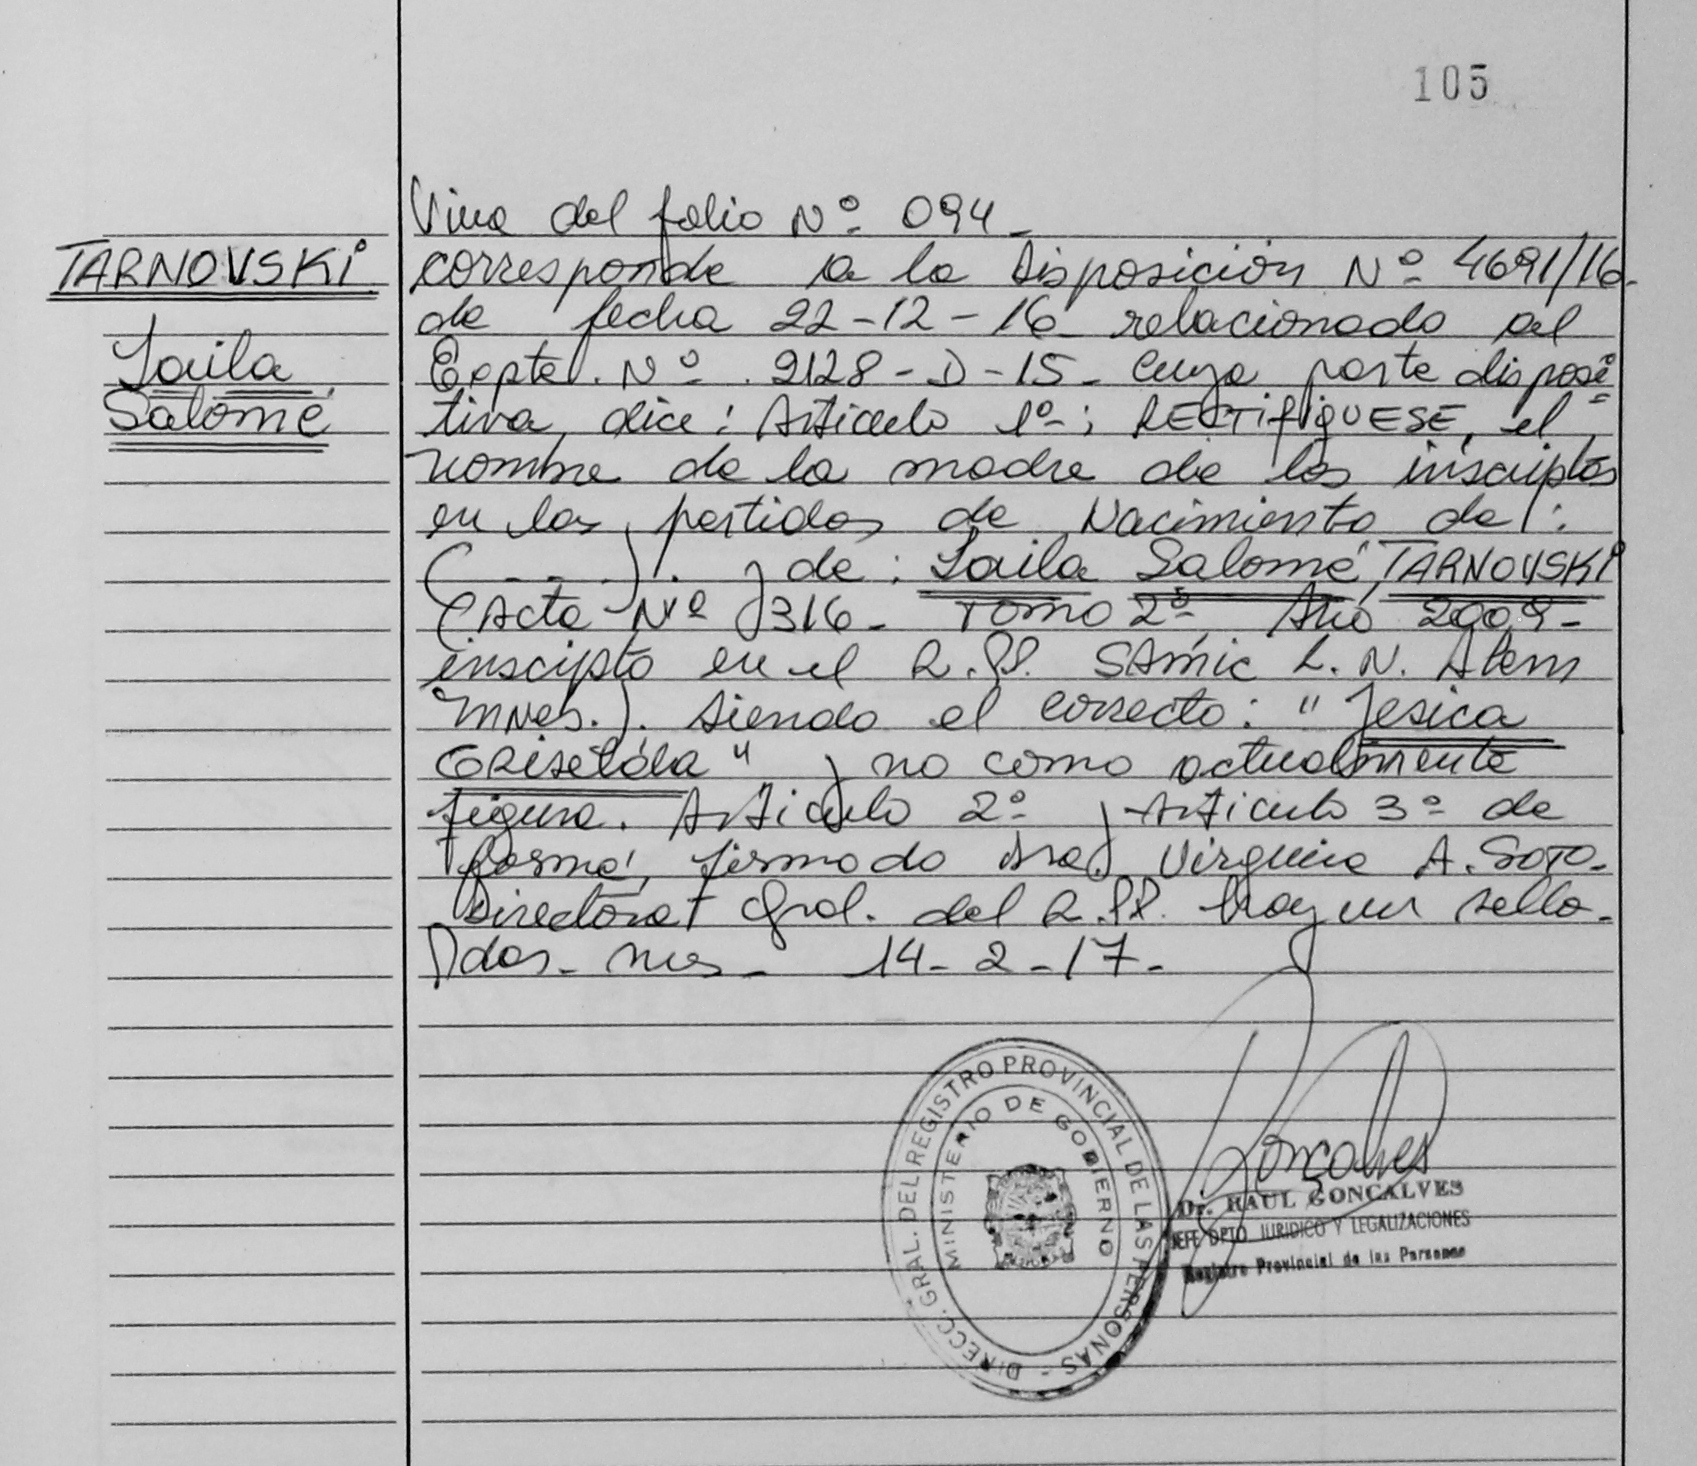 105
Viene del folio Nº 094-
TARNOVSKI
Laila
Salomé
corresponde a la Disposición Nº 4691/16-
de fecha 22-12-16 relacionado al
Expte. Nº 2128-D-15- Cuya parte disposi=
tiva, dice: Artículo 1º; RECTIFÍQUESE, el
nombre de la madre de los inscriptos
en las partidas de Nacimiento de:
(---). y de: Laila Salomé TARNOVSKI
(Acta Nº 316- Tomo 2º Año 2009-
inscipto en el R.PP. SAMIC L.N. Alem
Mnes.). Siendo el correcto: "Jesica
Griselda" y no como actualmente
figura. Artículo 2º y Artículo 3º de
forma, firmado Dra. Virginia A. SOTO-
Directora Gral. del R.PP. Hay un sello-
Pdas. Mes- 14-2-17-
DIRECC. GRAL. DEL REGISTRO PROVINCIAL DE LAS PERSONAS -
MINISTERIO DE GOBIERNO
Gonçalves
Dr. RAUL GONCALVES
JEFE DPTO. JURIDICO Y LEGALIZACIONES
Registro Provincial de las Personas